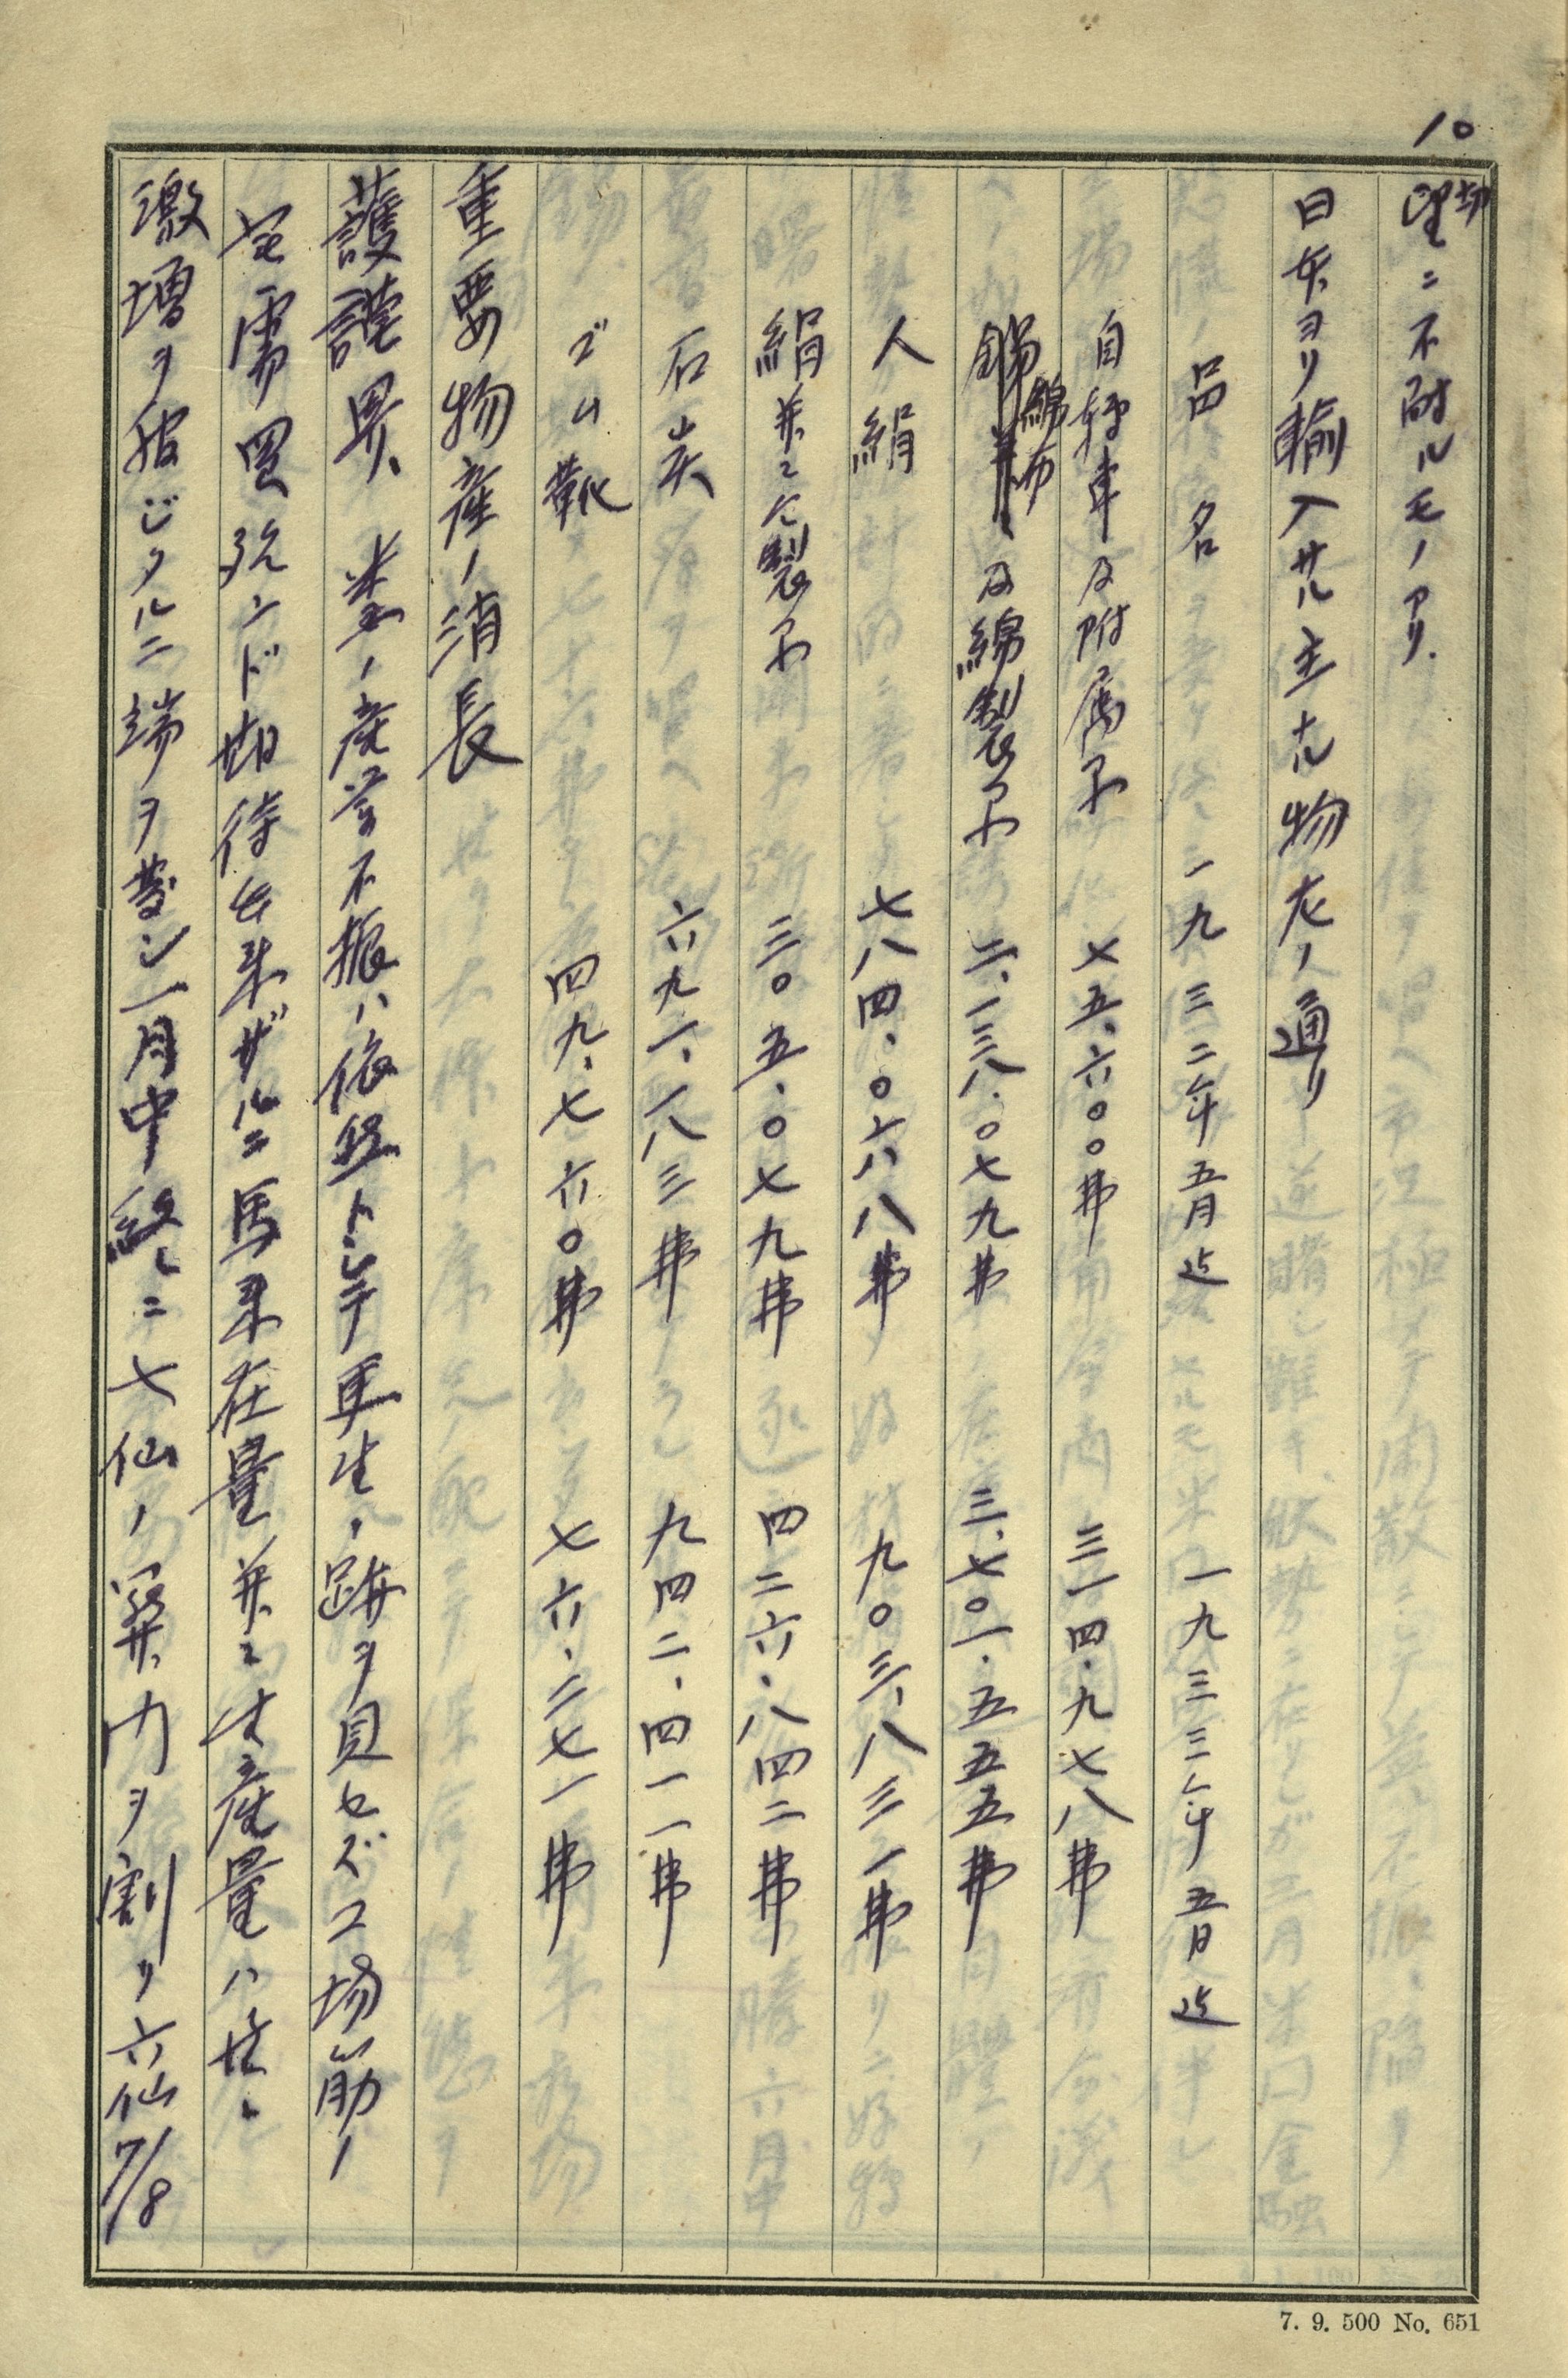 10
切望ニ不耐ルモノアリ.
日本ヨリ輸入サル主ナル物左ノ通リ
品名 一九三二年五月迄 一九三三年五月迄
自転車及附属品 七五、六〇〇弗 三一四、九七八弗
綿布及綿製品 二、一三八、〇七九弗 三、七〇一、五五五弗
人絹 七八四、〇六八弗 九〇三、八三一弗
絹并ニ仝製品 三〇五、〇七九弗 四二六、八四二弗
石炭 六九一、一八三弗 九四二、四一一弗
ゴム靴 四九、七六〇弗 七六、二七一弗
重要物産ノ消長
護謨界、 業ノ産営不振ハ依然トシテ更生ノ跡ヲ見セズ工場筋ノ
実需買殆ンド期待出来ザルニ馬来在量并ニ生産量ハ益々
激増ヲ報ジタルニ端ヲ発シ一月中終ニ七仙ノ関門ヲ割リ六仙7/8
7. 9. 500 No. 651